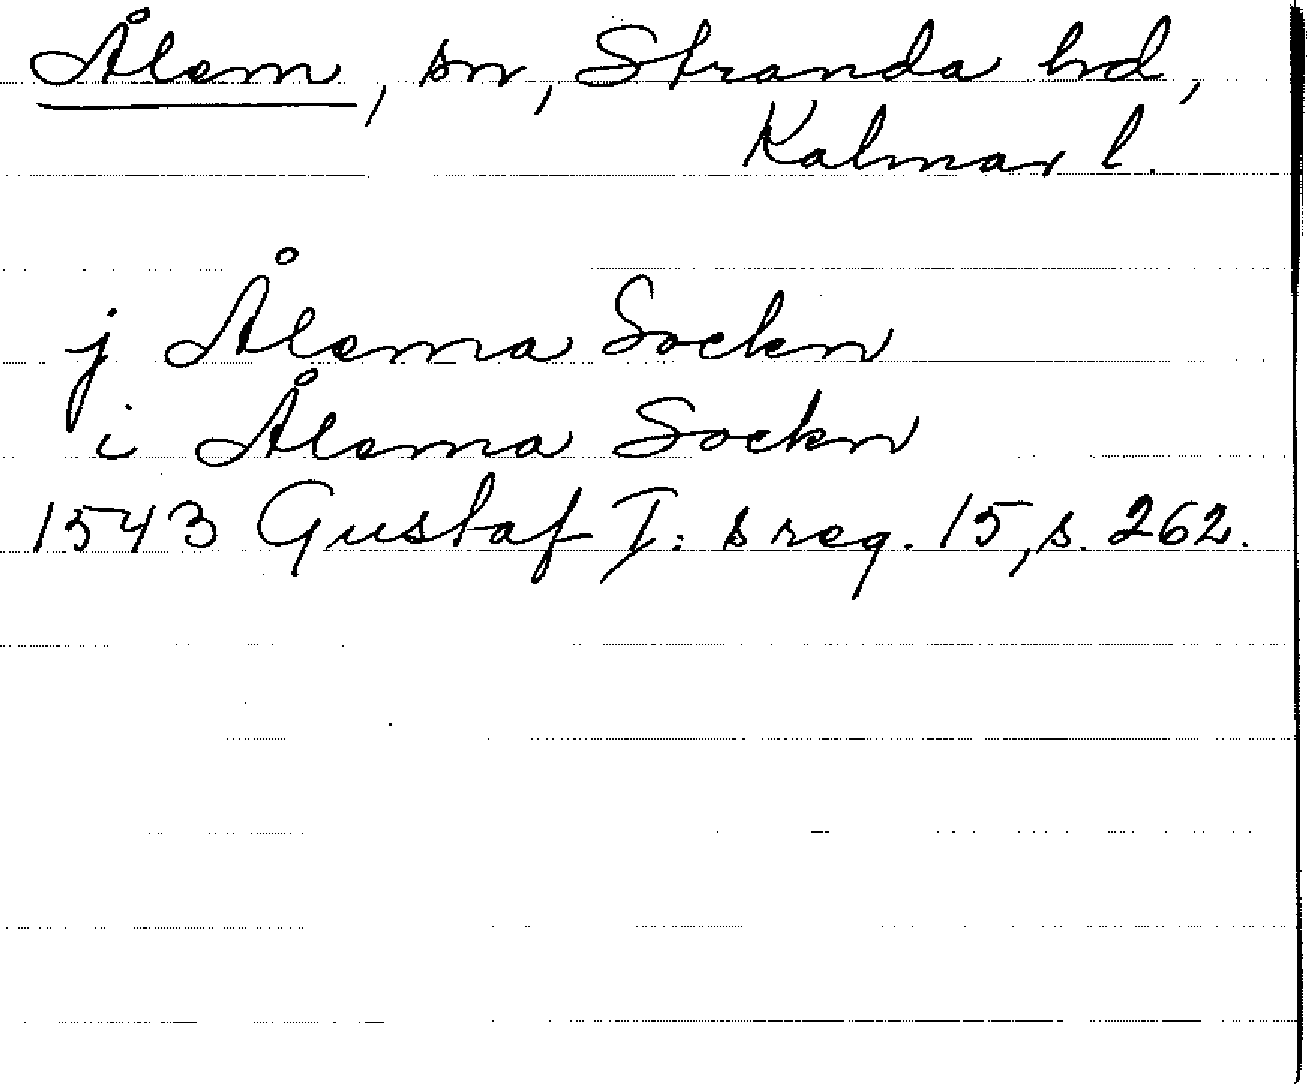 Ålem, sn, Stranda hd,
Kalmar l.
j Ålema Sockn
i Ålema Sockn
1543 Gustaf I:s reg. 15, s. 262.